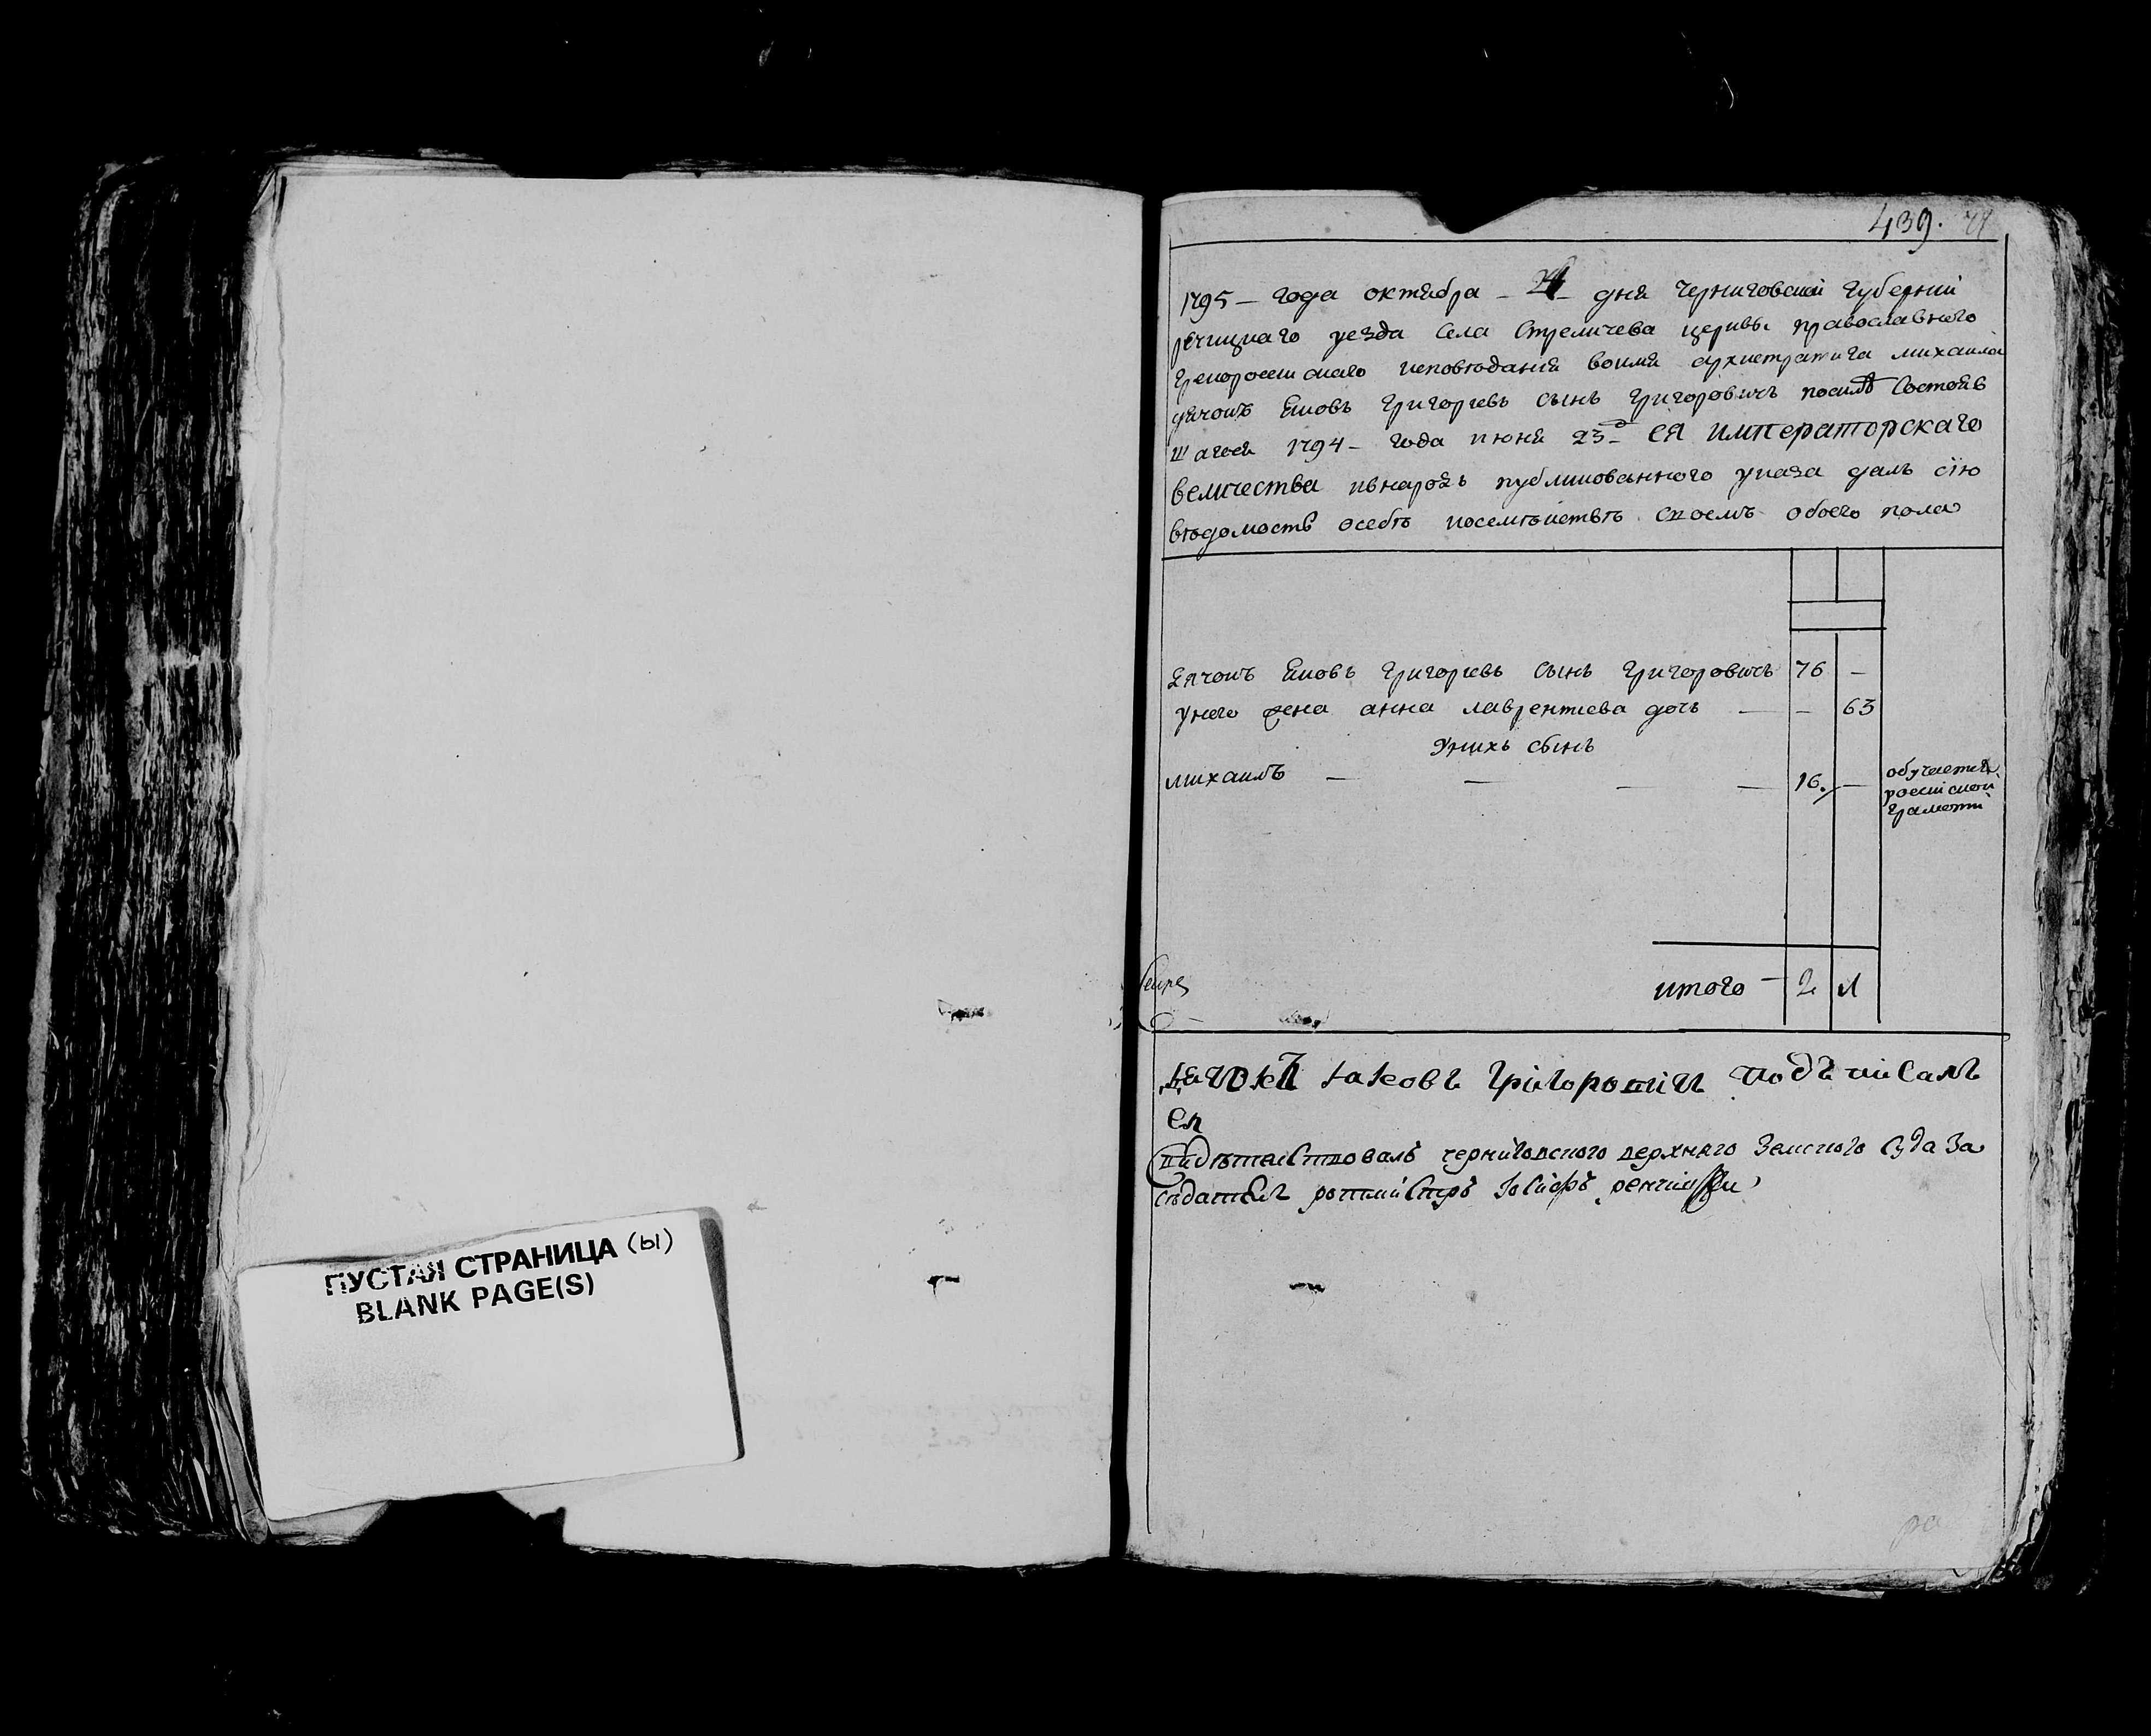 ПУСТАЯ СТРАНИЦА (ы)
BLANK PAGE(S)
439.
1795 — года октября — 24 — дня черниговской губернии
речицкаго уезда села Стреличева церквы православного
грекороссийскаго исповѣдания воимя архистратига михаила
дячокъ Яковъ Григориевъ сынъ Григоровичъ посилѣ Состояв
шагося 1794 — года июня 23 — ЕЯ императорскаго
величества ивнародъ публикованного указа далъ сию
вѣдомость осебѣ ·исемѣйствѣ своемъ обоего пола
дячокъ Яковъ Григориевъ сынъ Григоровичъ 76 —
унего жена анна лаврентиева дочь — — 63
Унихъ сынъ
михаилъ — — — — 16. — обучается
российской
грамоти
итого — 2 1
дячокъ Iаковъ Григоровичъ подъписалъ
ся
Свидѣтелствовалъ черниговского верхняго Земского Суда За
сѣдатель ротмистръ Iосифъ